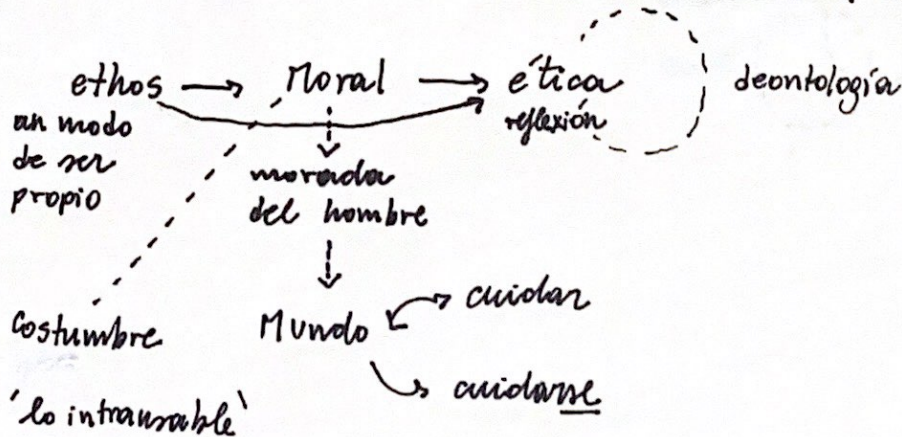 ethos → Moral → ética
deontología
reflexión
un modo
de ser
propio
morada
del hombre
costumbre
Mundo
cuidar
cuidarse
'lo intransable'